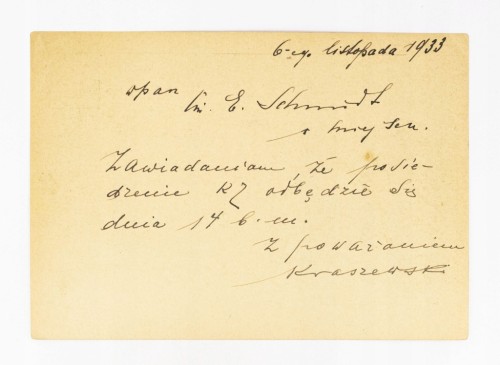 6-ego listopada 1933
wpan
inż. E. Schmidt
w miejscu.
Zawiadamiam, że posie-
dzenie RZ odbędzie się
dnia 14 b. m.
Z poważaniem
Kraszewski